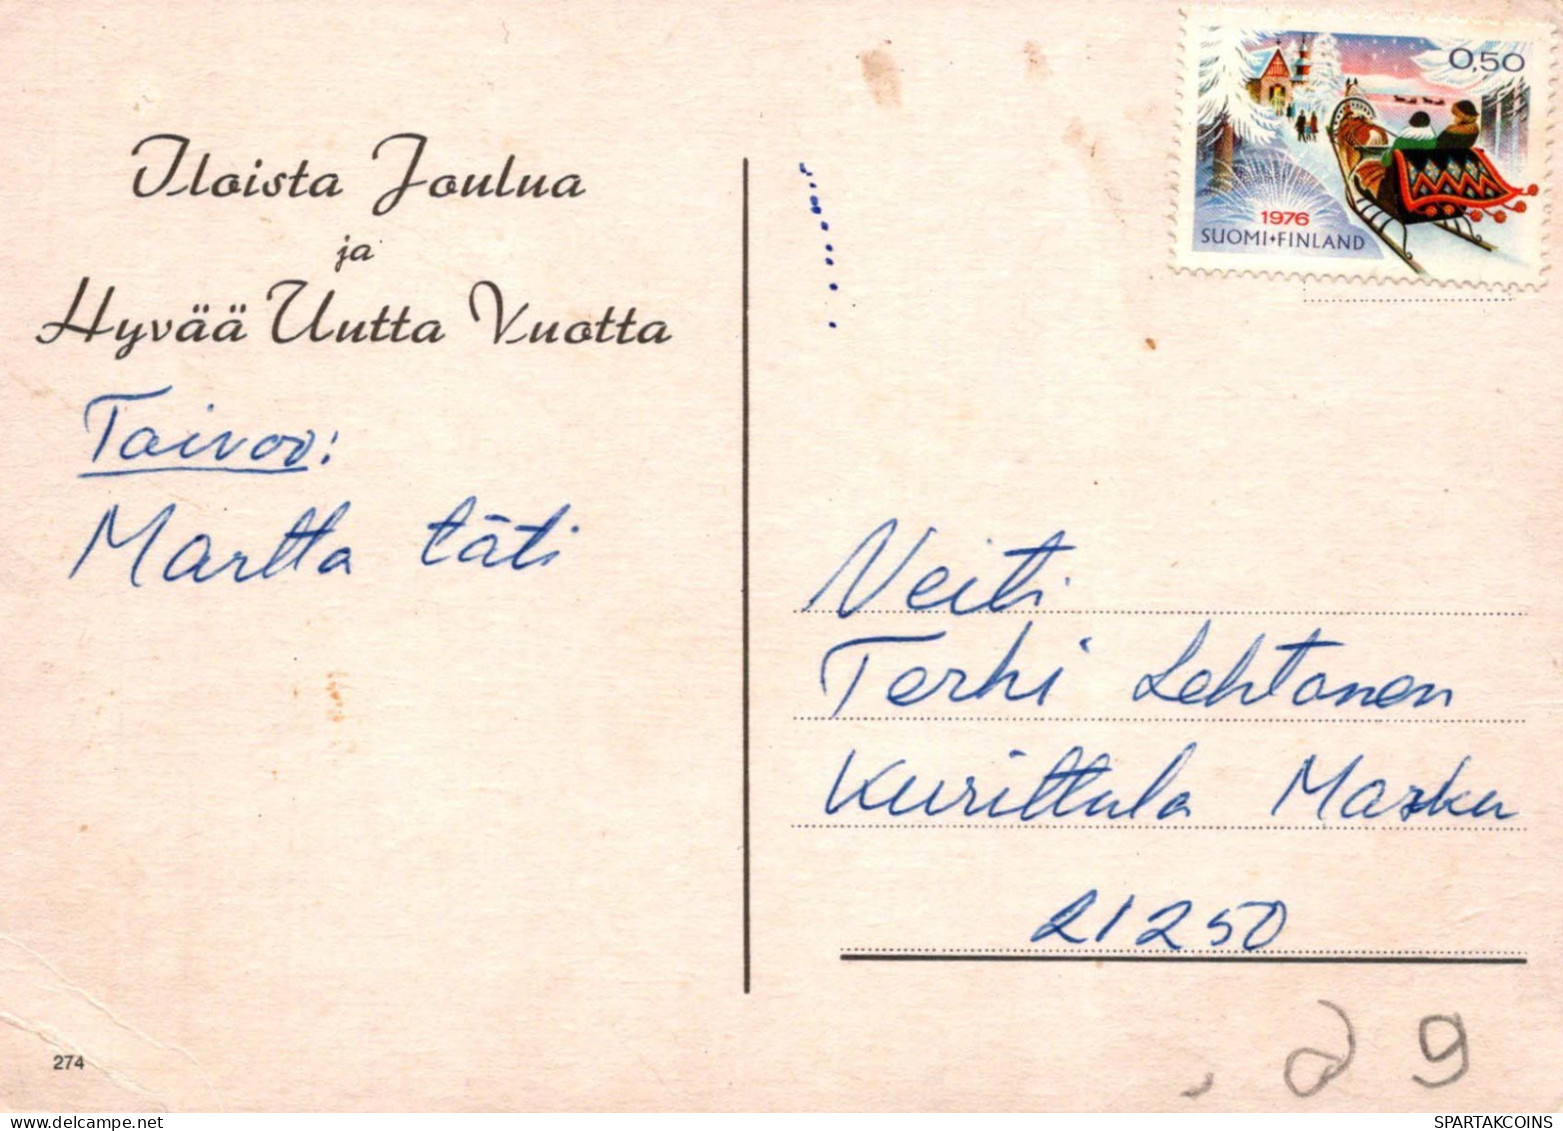 Iloista Joulua
ja
Hyvää Uutta Vuotta
Toivoo:
Martta täti
0,50
1976
SUOMI+FINLAND
Neiti
Terhi Lehtonen
Kurittula Masku
21250
274
SPARTAKCOINS